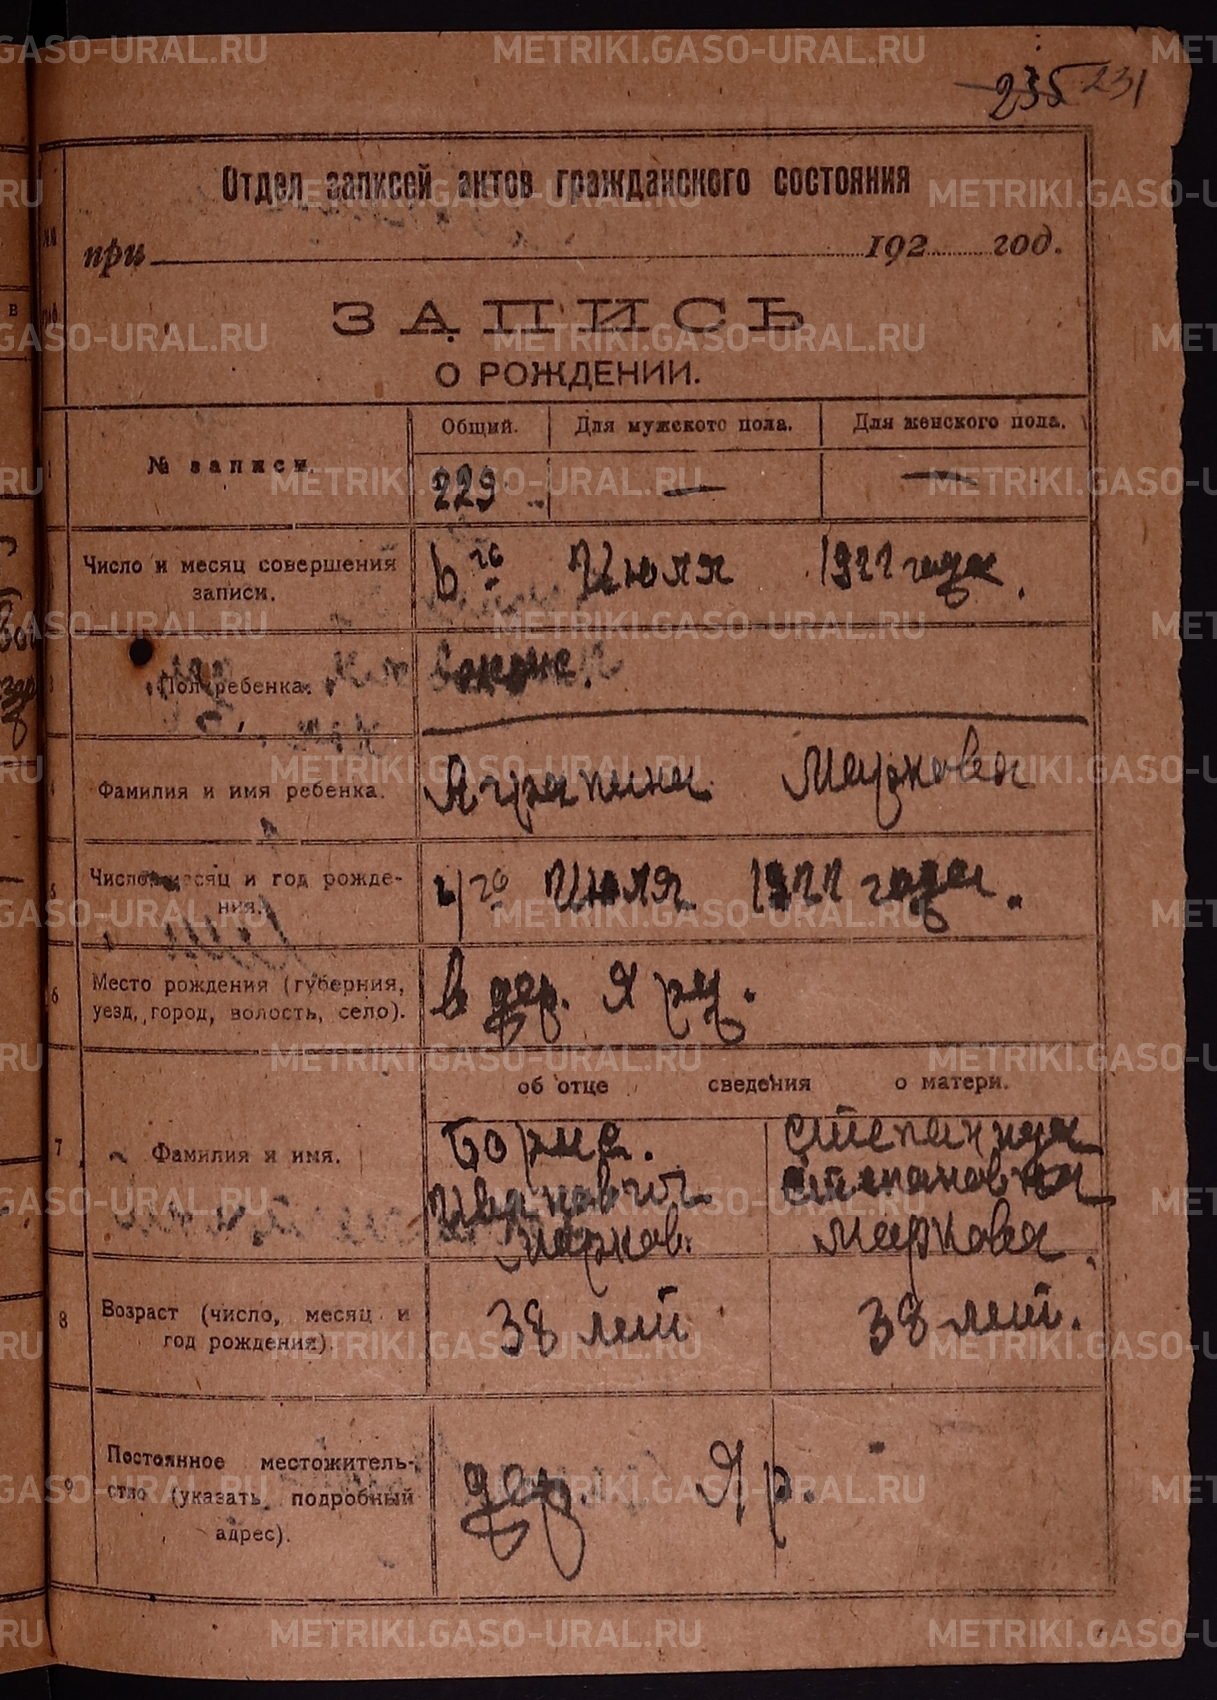 235 231
Отдел записей актов гражданского состояния
при 192 год.
ЗАПИСЬ
О РОЖДЕНИИ.
№ записи.
Общий. Для мужского пола. Для женского пола.
229 — —
Число и месяц совершения
записи.
6го Июля 1922 года.
Пол ребенка.
Фамилия и имя ребенка.
Аграпина Маркова
Число месяц и год рожде-
ния.
го Июля 1922 года.
6
Место рождения (губерния,
уезд, город, волость, село).
в дер. Яру.
об отце сведения о матери.
7
Фамилия и имя.
Иванович
Марков.
Степанида
Степановна
Маркова.
8
Возраст (число, месяц и
год рождения).
38 лет 38 лет.
9
Постоянное местожитель-
ство (указать подробный
адрес).
дер. Яр.
METRIKI.GASO-URAL.RU